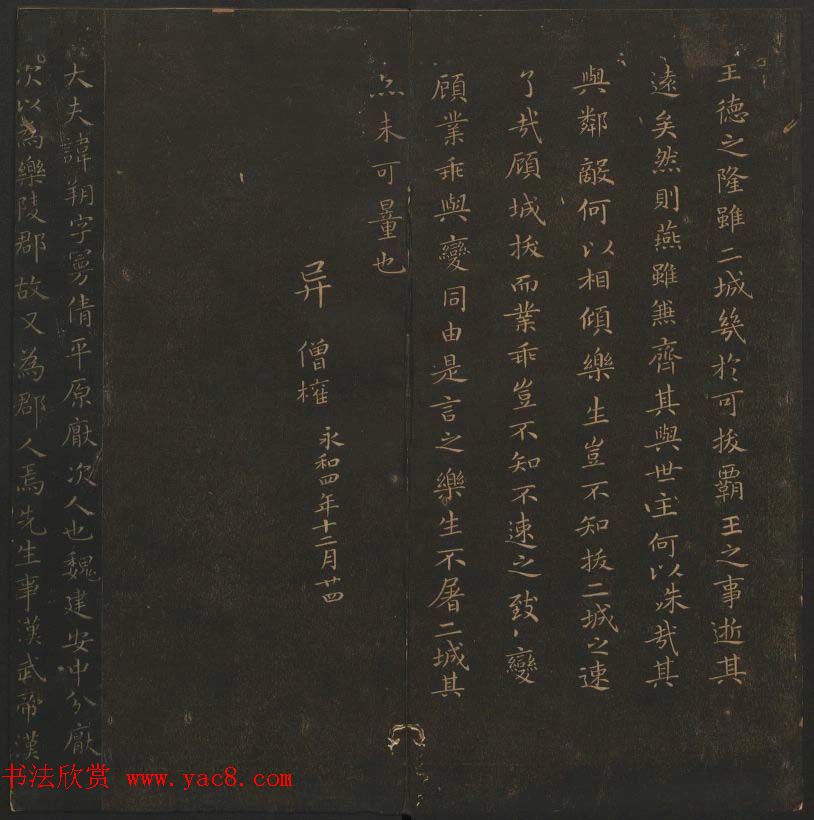 王德之隆雖二城幾於可拔霸王之事逝其
遠矣然則燕雖無齊其與世主何以殊哉其
與鄰敵何以相傾樂生豈不知拔二城之速
了哉顧城拔而業乖豈不知不速之致、變
顧業乖與變同由是言之樂生不屠二城其
亦未可量也
异 僧權
永和四年十二月廿四
大夫諱朔字曼倩平原厭次人也魏建安中分厭
次以為樂陵郡故又為郡人焉先生事漢武帝漢
书法欣赏 www.yac8.com